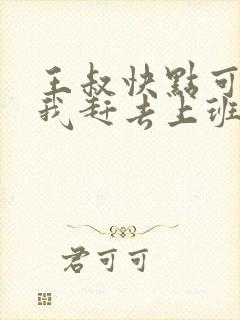 王叔快點可
我赶去上班
君可可